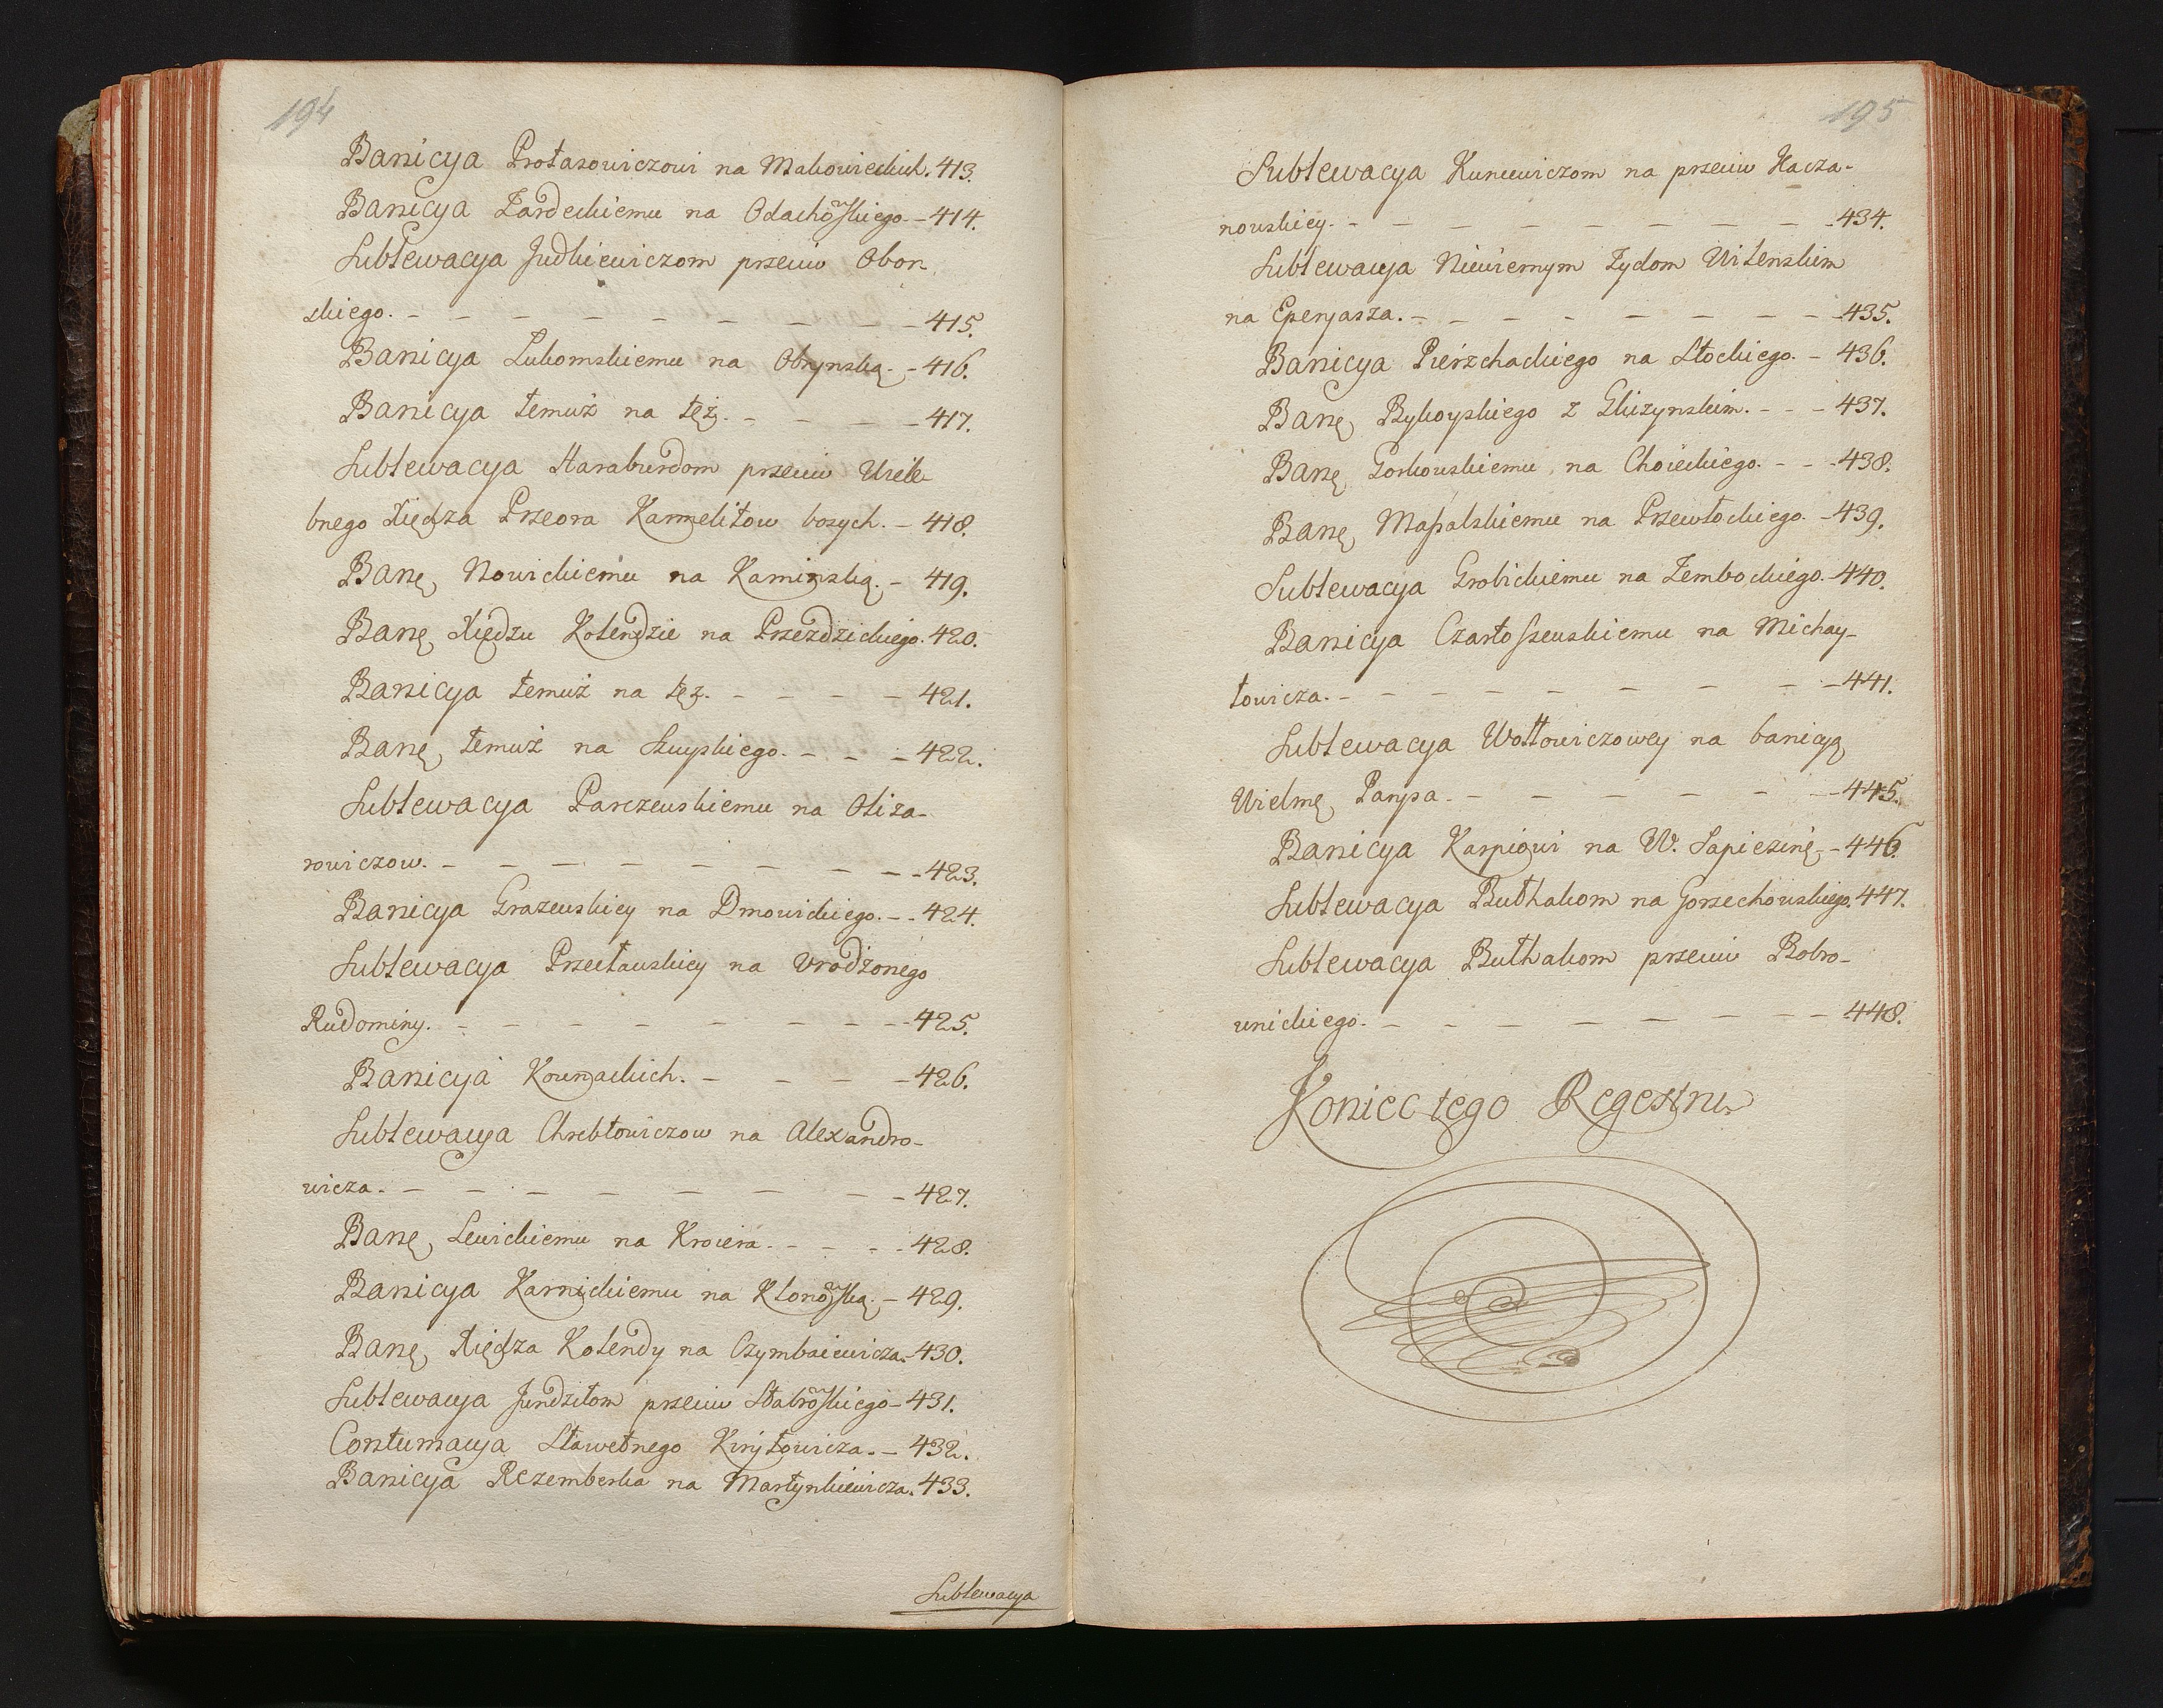 194
Banicya Protasowiczowi na Makowieckich. 413.
Banicya Zardeckiemu na Odachoskiego. - 414.
Sublewacya Judkiewiczom przeciw Obor-
skiego. - - - - - - - - - 415.
Banicya Lukomskiemu na Obrynską. - 416.
Banicya temuż na tęż. - - - - 417.
Sublewacya Haraburdom przeciw Wiele-
bnego Xiędza Przeora Karmelitow bosych. - 418.
Banę, Nowickiemu na Kaminską. - 419.
Banę, Xiędzu Kolendzie na Przezdzickiego. 420.
Banicya temuż na tęż. - - - - 421.
Banę, temuż na Szuyskiego. - - - 422.
Sublewacya Parczewskiemu na Oliza-
rowiczow. - - - - - - - - 423.
Banicya Grazewskiey na Dmowickiego. - - 424.
Sublewacya Przecławskiey na Urodzonego
Rudominy. - - - - - - - - 425.
Banicya Kownackich. - - - - 426.
Sublewacya Chrebtowiczow na Alexandro-
wicza. - - - - - - - - 427.
Banę, Lewickiemu na Kroiera. - - - - 428.
Banicya Karnickiemu na Klonoską. - 429.
Banę, Xiędza Kolendy na Czymbaiewicza. - 430.
Sublewacya Jundziłom przeciw Stabroskiego - 431.
Contumacya Sławetnego Kiryłowicza. - 432.
Banicya Rczemberka na Martynkiewicza. 433.
Sublewacya
195
Sublewacya Kuncewiczom na przeciw Kacza-
nowskiey. - - - - - - - - 434.
Sublewacya Niewiernym Zydom Witenskim
na Eperjasza. - - - - - - - - 435.
Banicya Pierzchackiego na Słockiego. - 436.
Banę, Rykoyskiego z Gliczynskim. - - - 437.
Banę, Gorkowskiemu na Choieckiego. - - - 438.
Banę, Massalskiemu na Przewłockiego. - 439.
Sublewacya Grobickiemu na Zembockiego. - 440.
Banicya Czartoszewskiemu na Michay-
łowicza. - - - - - - - - 441.
Sublewacya Wołłowiczowey na banicyą
Wielmę Parysa. - - - - - - 445.
Banicya Karpiowi na W. Sapiezinę, - 446.
Sublewacya Buthakom na Gorzechowskiego. 447.
Sublewacya Buthakom przeciw Bobro-
wnickiego. - - - - - - - - 448.
Koniec tego Regestru